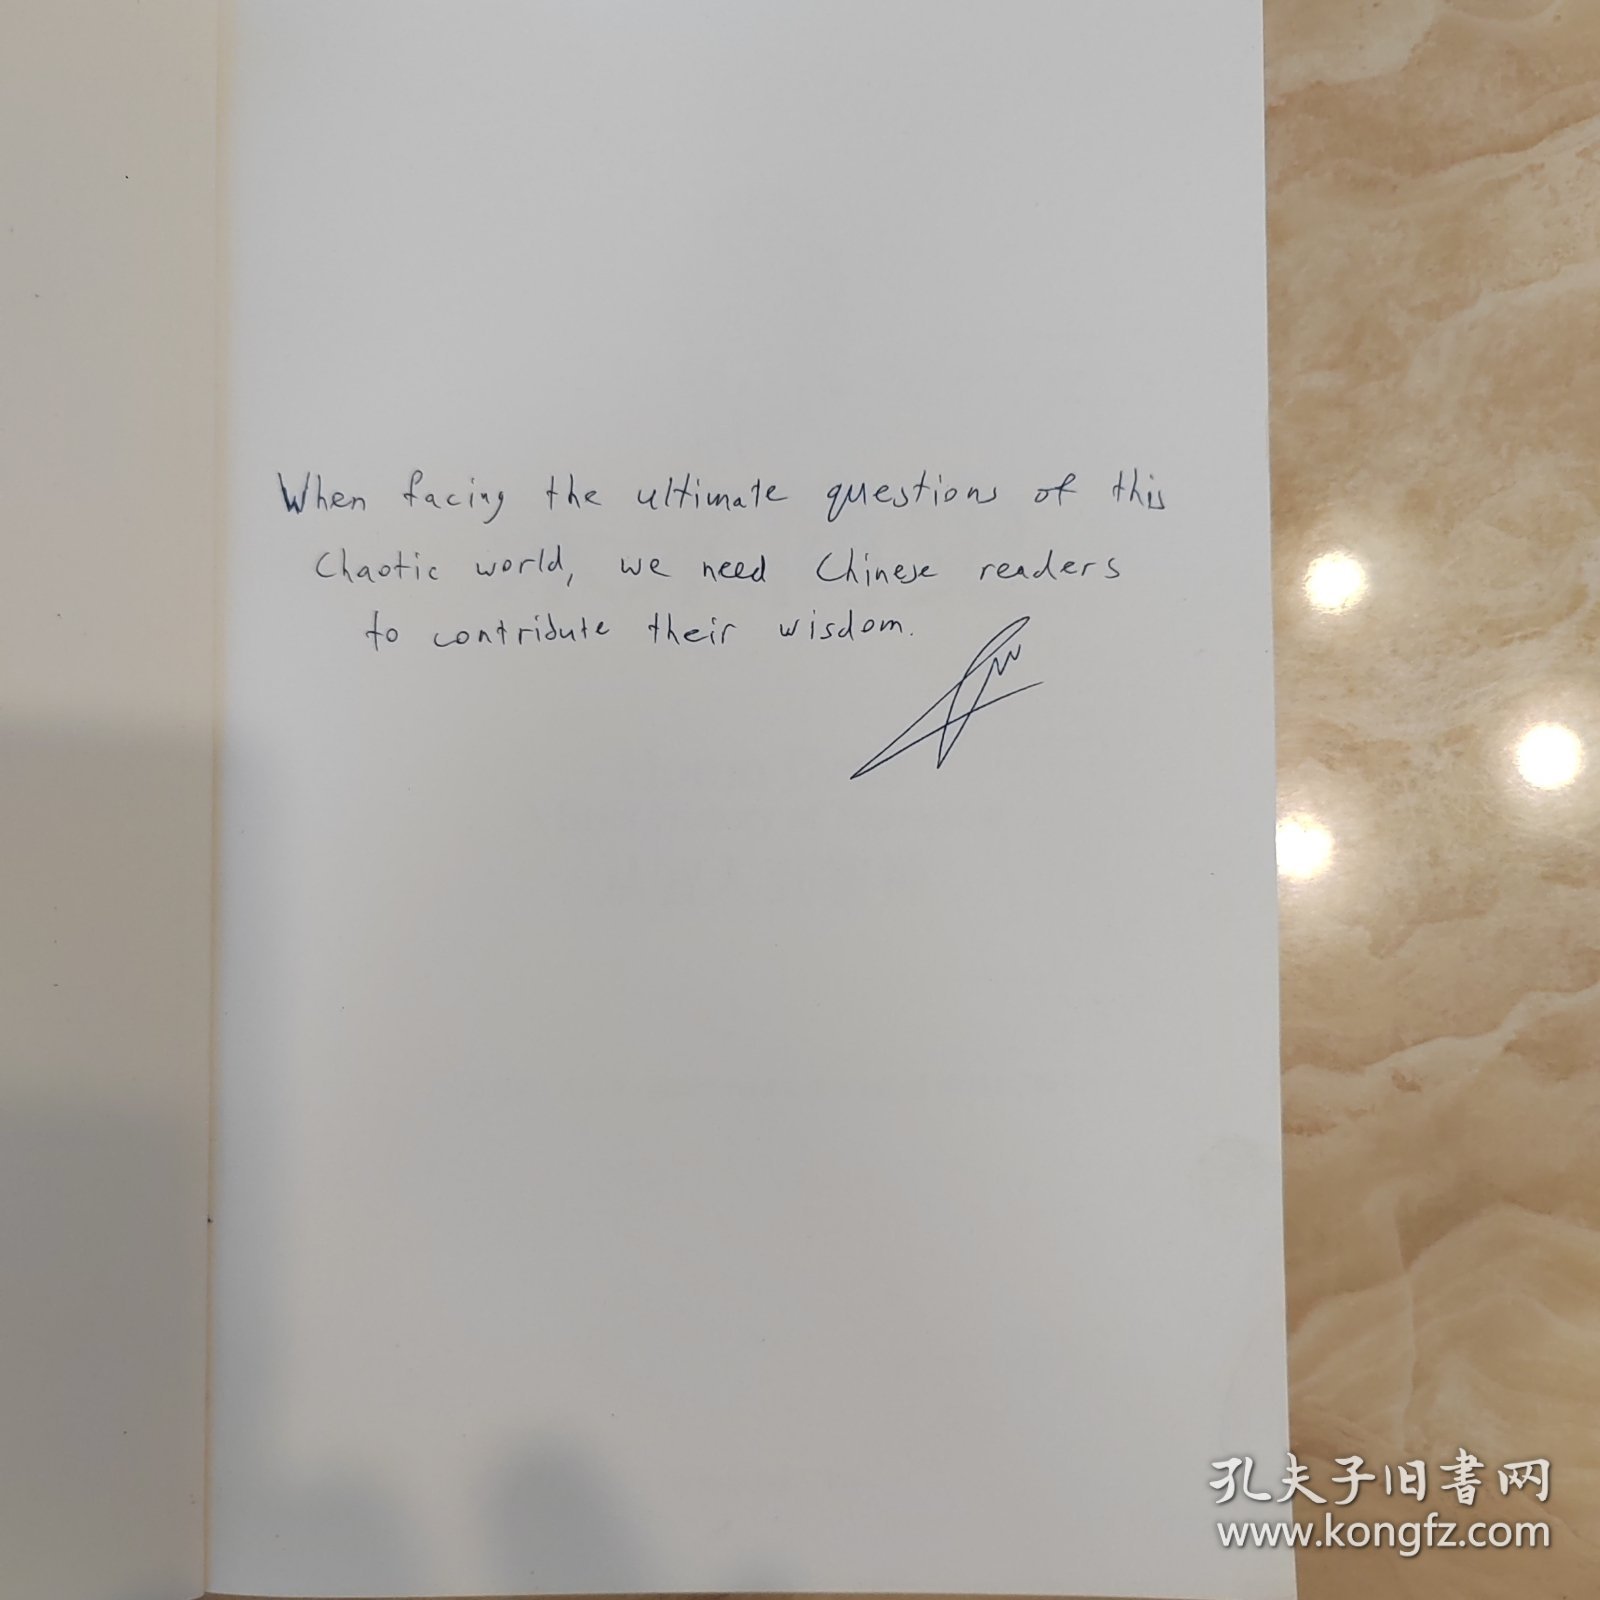 When facing the ultimate questions of this
Chaotic world, we need Chinese readers
to contribute their wisdom.
孔夫子旧书网
www.kongfz.com